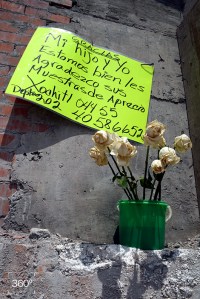 Mi hijo y Yo
Estamos bien les
Agradezco sus
Muestras de Aprecio
Xochitl 044 55
Depto 202 40586652
360°